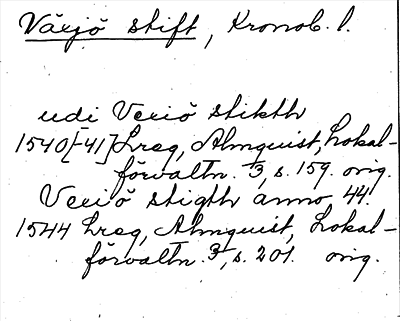 Växjö stift, Kronob. l.
udi Vexiö stikth
1540[-41] Lreg, Almquist, Lokal-
förvaltn. 3, s. 159. orig.
Vexiö stigth anno 44.
1544 Lreg, Almquist, Lokal-
förvaltn. 3, s. 201. orig.